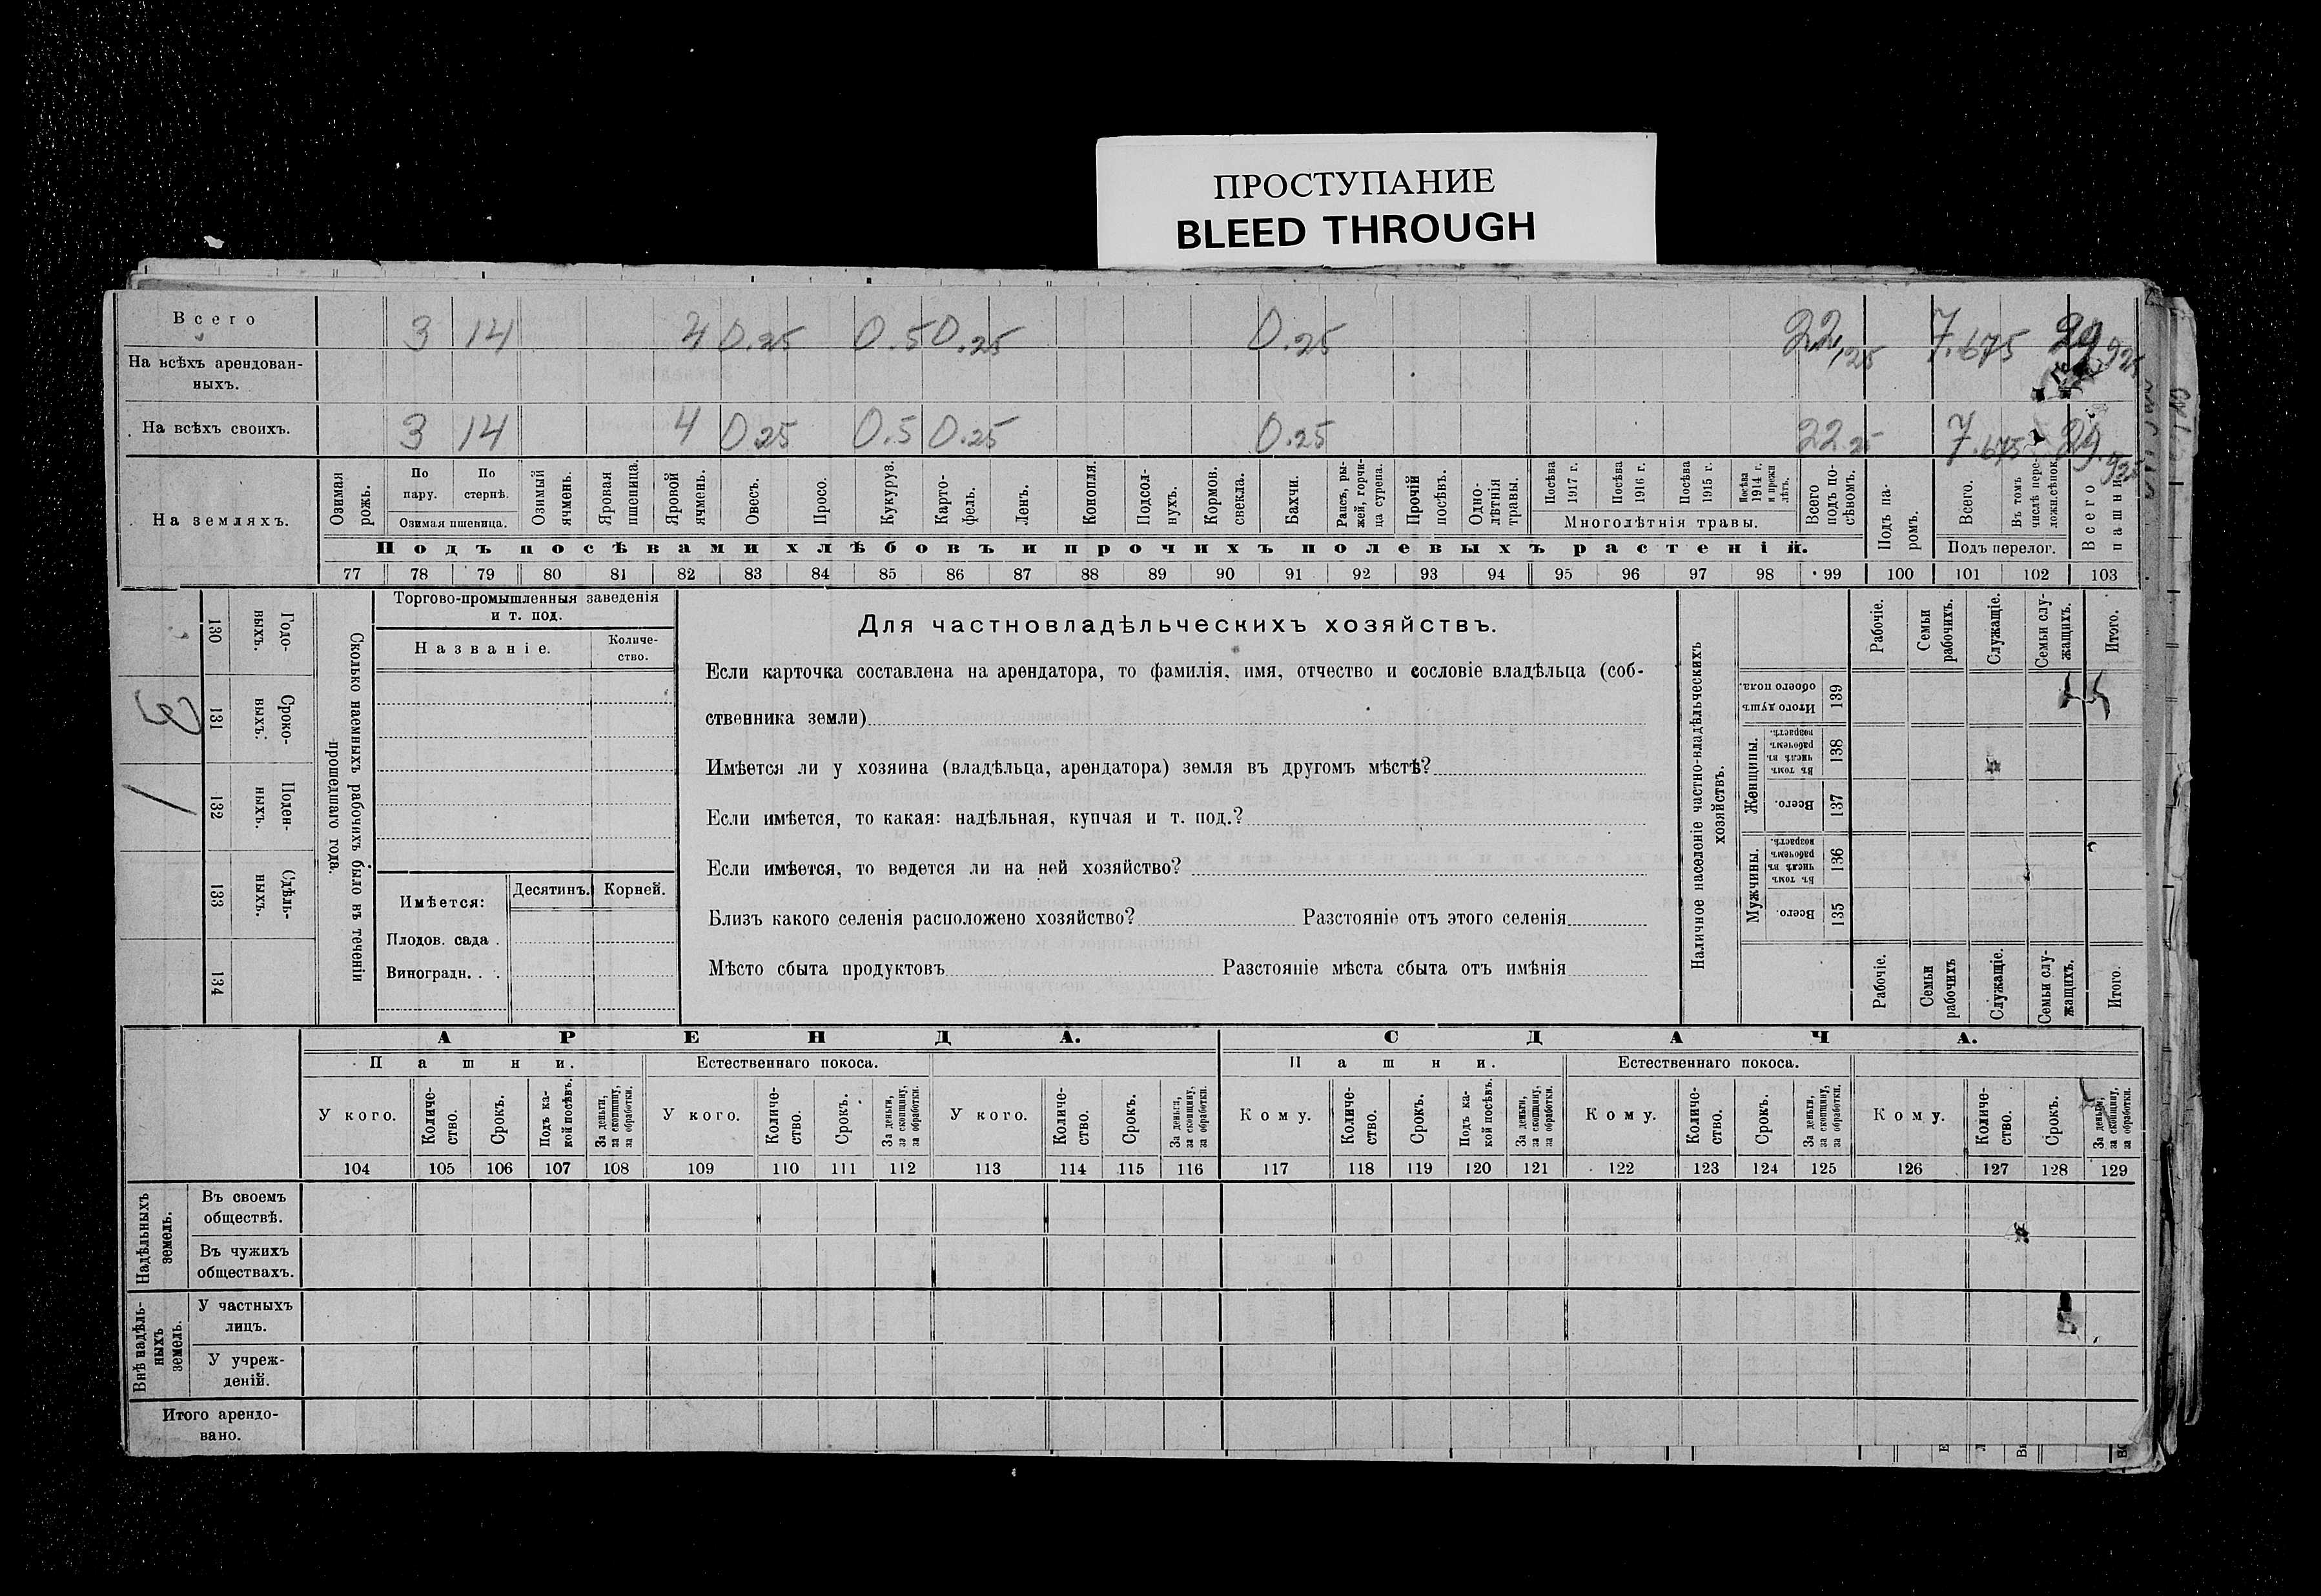 ПРОСТУПАНИЕ
BLEED THROUGH
Всего 3 14 4 0.25 0.5 0.25 0.25 22,25 7.675 29,925
На всѣхъ арендован-
ныхъ.
На всѣхъ своихъ. 3 14 4 0.25 0.5 0.25 0.25 22.25 7.675 29.925
На земляхъ.
Озимая рожь.
По пару.
По стернѣ.
Озимая пшеница.
Озимый ячмень.
Яровая пшеница.
Яровой ячмень.
Овесъ.
Просо.
Кукуруз.
Карто-
фель.
Ленъ.
Конопля.
Подсол-
нухъ.
Кормов. свекла.
Бахчи.
Рапсъ, ры-
жей, горчи-
ца сурепа.
Прочій посѣвъ.
Одно-
лѣтнія травы.
Посѣва 1917 г.
Посѣва 1916 г.
Посѣва 1915 г.
Посѣва 1914 г. и прежн лѣтъ.
Многолѣтнія травы.
Всего подъ по-
сѣвомъ.
Подъ па-
ромъ.
Всего.
Въ томъ числѣ пере-
ложн. сѣнок.
Подъ перелог.
Всего пашни
Подъ посѣвами хлѣбовъ и прочихъ полевыхъ растеній.
77 78 79 80 81 82 83 84 85 86 87 88 89 90 91 92 93 94 95 96 97 98 99 100 101 102 103
3
130 131 132 133 134
Годо-
ныхъ.
Сроко-
ныхъ.
Поден-
ныхъ.
Сдѣль-
ныхъ.
Сколько наемныхъ рабочихъ было въ теченіи
прошедшаго года.
Торгово-промышленныя заведенія
и т. под.
Названіе.
Количе-
ство.
Имѣется:
Десятинъ.
Корней.
Плодов. сада .
Виноградн. . .
Для частновладѣльческихъ хозяйствъ.
Если карточка составлена на арендатора, то фамилія, имя, отчество и сословіе владѣльца (соб-
ственника земли)
Имѣется ли у хозяина (владѣльца, арендатора) земля въ другомъ мѣстѣ?
Если имѣется, то какая: надѣльная, купчая и т. под.?
Если имѣется, то ведется ли на ней хозяйство?
Близъ какого селенія расположено хозяйство? Разстояніе отъ этого селенія
Мѣсто сбыта продуктовъ Разстояніе мѣста сбыта отъ имѣнія
Наличное населеніе частно-владѣльческихъ
хозяйствъ.
Рабочіе.
Семьи рабочихъ.
Служащіе.
Семьи слу-
жащихъ.
Итого.
Итого душъ обоего пола. 139
Женщины.
Въ томъ числѣ въ рабочемъ возрастѣ. 138
Всего. 137
Мужчины.
Въ томъ числѣ въ рабочемъ возрастѣ. 136
Всего. 135
Рабочіе.
Семьи рабочихъ
Служащіе.
Семьи слу-
жащихъ.
Итого.
АРЕНДА. СДАЧА.
Пашни. Естественнаго покоса. Пашни. Естественнаго покоса.
У кого.
Количе-
ство.
Срокъ.
Подъ ка-
кой посѣвъ.
За деньги, за скопщину, за обработки.
У кого.
Количе-
ство.
Срокъ.
За деньги, за скопщину, за обработки.
У кого.
Количе-
ство.
Срокъ.
За деньги, за скопщину, за обработки.
Кому.
Количе-
ство.
Срокъ.
Подъ ка-
кой посѣвъ.
За деньги, за скопщину, за обработки.
Кому.
Количе-
ство.
Срокъ.
За деньги, за скопщину, за обработки.
Кому.
Количе-
ство.
Срокъ.
За деньги, за скопщину, за обработки.
104 105 106 107 108 109 110 111 112 113 114 115 116 117 118 119 120 121 122 123 124 125 126 127 128 129
Надѣльныхъ земель.
Въ своемъ
обществѣ.
Въ чужихъ
обществахъ.
Внѣ надѣль-
ныхъ земель.
У частныхъ
лицъ.
У учреж-
деній.
Итого арендо-
вано.